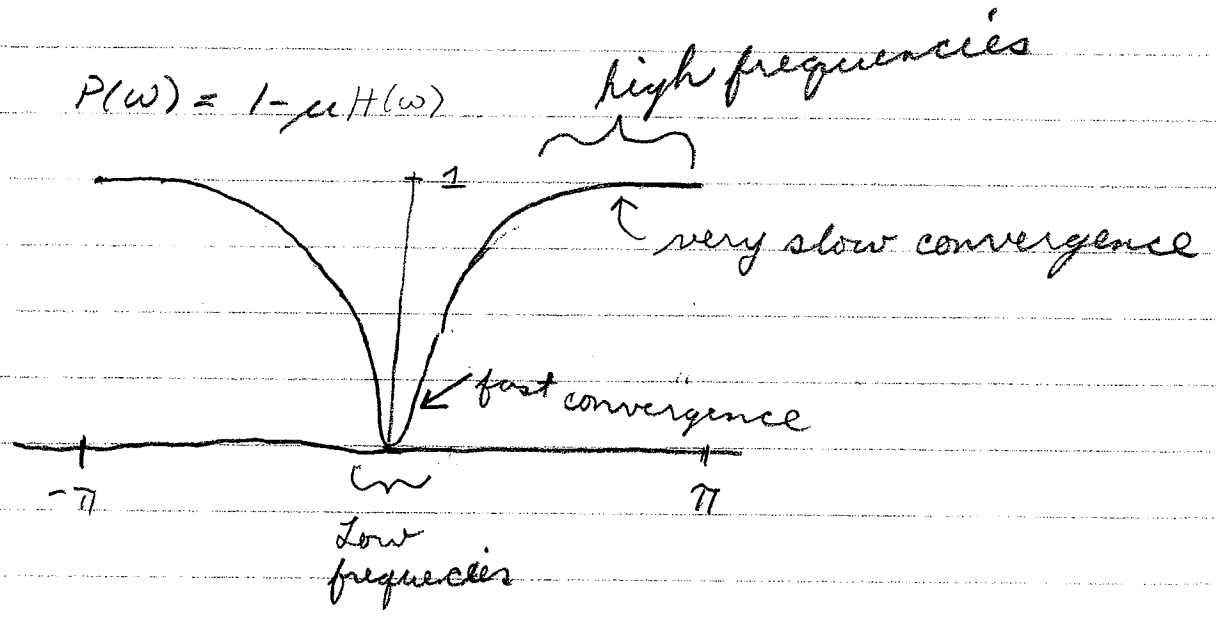 high frequencies
P(ω) = 1-μH(ω)
1
very slow convergence
fast convergence
-π
π
Low
frequecies